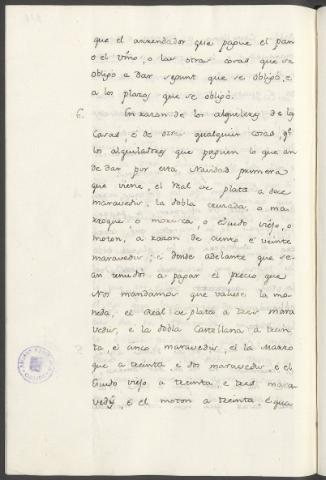 que el arrendador que pague el pan
o el vino, o las otras cosas que se
obligó a dar segunt que se obligó, e
a los plazos que se obligó.
6. En razon de los alquileres de las
Casas, e de otra qualquier cosas, qᵉ
los alquiladores que paguen lo que an
de dar por esta Navidad primera
que viene, el Real de plata a doce
maravedis, la dobla cruzada, o ma
rroque, o morisca, o Escudo viejo, o
moton, a razon de ciento e veinte
maravedis; e dende adelante que se-
an tenudos a pagar el precio que
Nos mandamos que valiese la mo-
neda, el Real de plata a tres mara
vedis, e la dobla Castellana a trein
ta, e cinco maravedis, e la Marro
que a treinta e dos maravedis, e el
Escudo viejo a treinta, e tres mara
vedis, e el moton a treinta, e qua